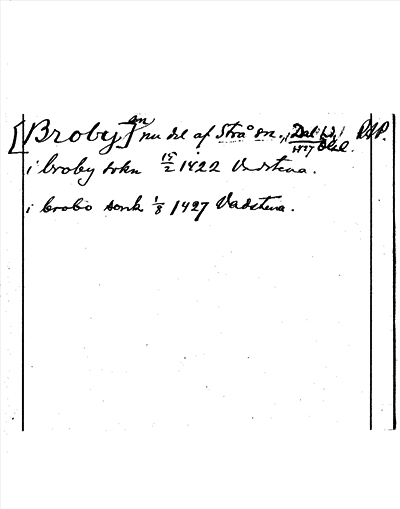 [Broby] sn nu del af Strå sn., Dals hd, RAP.
i broby sokn 15/2 1422 Vadstena.
i brobo sonk 1/8 1427 Vadstena.